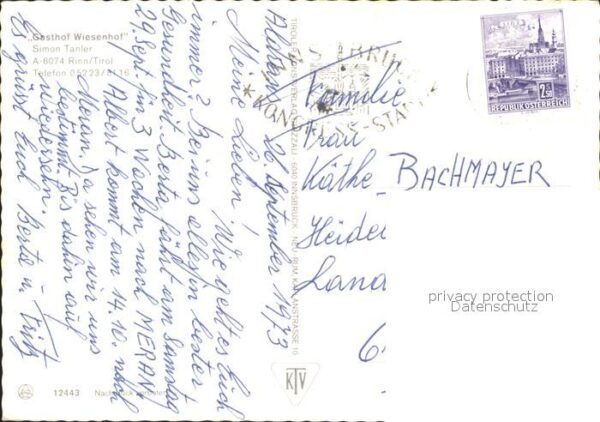 "Gasthof Wiesenhof"
Simon Tanler
A-6074 Rinn/Tirol
Telefon 05223/8116
Aldrans, 26 September 1973
Meine Lieben! Wie geht es Euch
immer? Bei uns alles in bester
Gesundheit. Berta fährt am Samstag
29 Sept für 3 Wochen nach MERAN
Albert kommt am 14.10. nach
Meran. Da sehen wir uns
bestimmt. Bis dahin auf
wiedersehen.
Es grüsst Euch Berta u. Fritz
12443
KTV
INNSBRUCK
KONGRESS-STADT
2.50
REPUBLIK ÖSTERREICH
Familie
Frau
Käthe BACHMAYER
Heidel
Land
6
privacy protection
Datenschutz